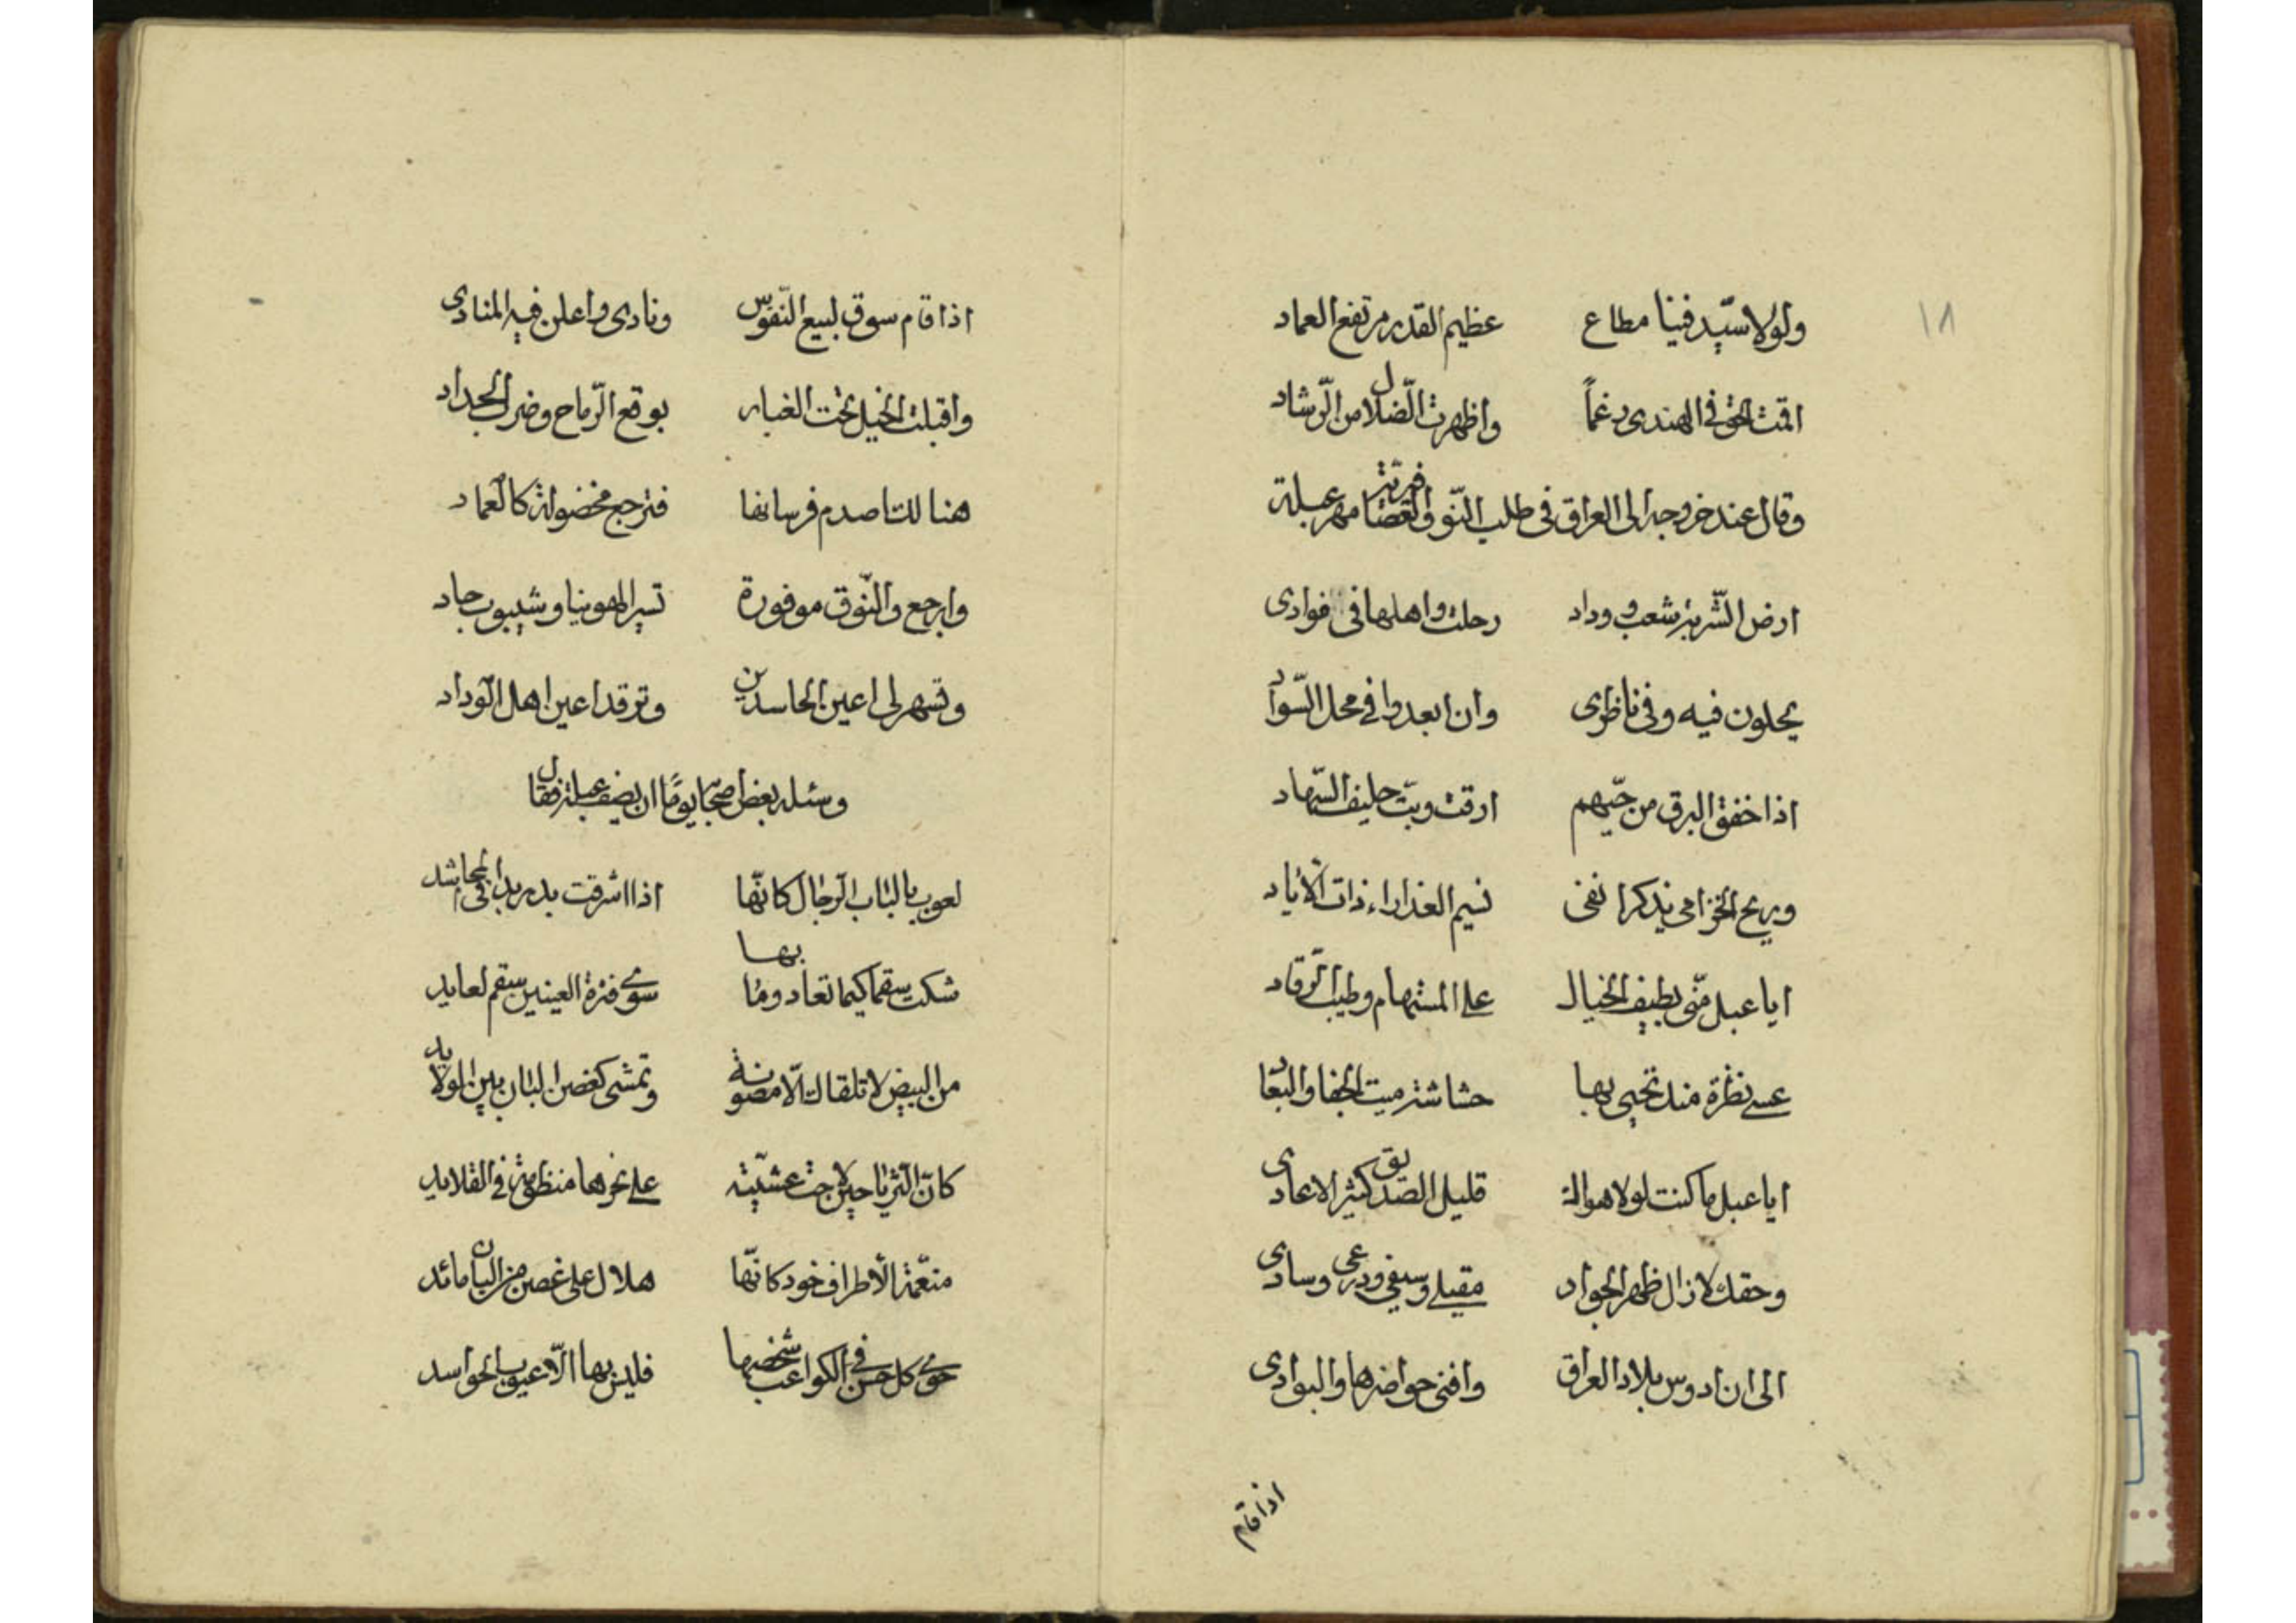 ١٨
ولولا سيّد فينا مطاع عظيم القدر مرتفع العماد
اقمت الحق في الهندى رغماً واظهرت الضّلال من الرّشاد
وقال عند خروجه الى العراق فى طلب النّوق العصافيرية مهر عبلة
ارض الشّربة شعب و وداد رحلت واهلها فى فوادى
يحلون فيه وفى ناظرى وان ابعدوا فى محل السّواد
اذا خفق البرق من حيّهم ارقت وبتّ حليف السّهاد
وريح الخزامى يذكر انفى نسيم العذاراء ذات الأياد
ايا عبل منّى بطيف الخيال على المستهام وطيب الرّقاد
عسى نظرة منه تحيى بها حشاشة ميت الجفا والبعاد
ايا عبل ما كنت لولا هواك قليل الصّديق كثير الاعادى
وحقك لا زال ظهر الجواد مقيلى وسيفى ودرعى وسادى
الى ان ادوس بلاد العراق وافنى حواضرها والبوادى
اذا قام
اذا قام سوق لبيع النّفوس ونادى واعلن فيه المنادى
واقبلت الخيل تحت الغبار بوقع الرّماح وضرب الحداد
هنالك اصدم فرسانها فترجع مخضولة كالعماد
وارجع والنّوق موفورة تسير الهوينا وشيبوب حاد
وتسهر لى اعين الحاسدين وترقد اعين اهل الوداد
وسئله بعض اصحابه يومًا ان يصف عبلة فقال
لعوب بالباب الرّجال كانّها اذا اشرقت بدر بدا فى المحاشد
شكت سقما كيما تعاد وما بها سوى فترة العينين سقم لعايد
من البيض لا تلقاك الّا مصونة وتمشى كغصن البان بين الولايد
كانّ الثّريا حين لاحت عشيّة على نحرها منظومة فى القلايد
منعّمة الأطراف خود كانّها هلال على غصن من البان مائد
حوى كل حسن فى الكواعب شخصها فليس بها الّا عيوب الحواسد